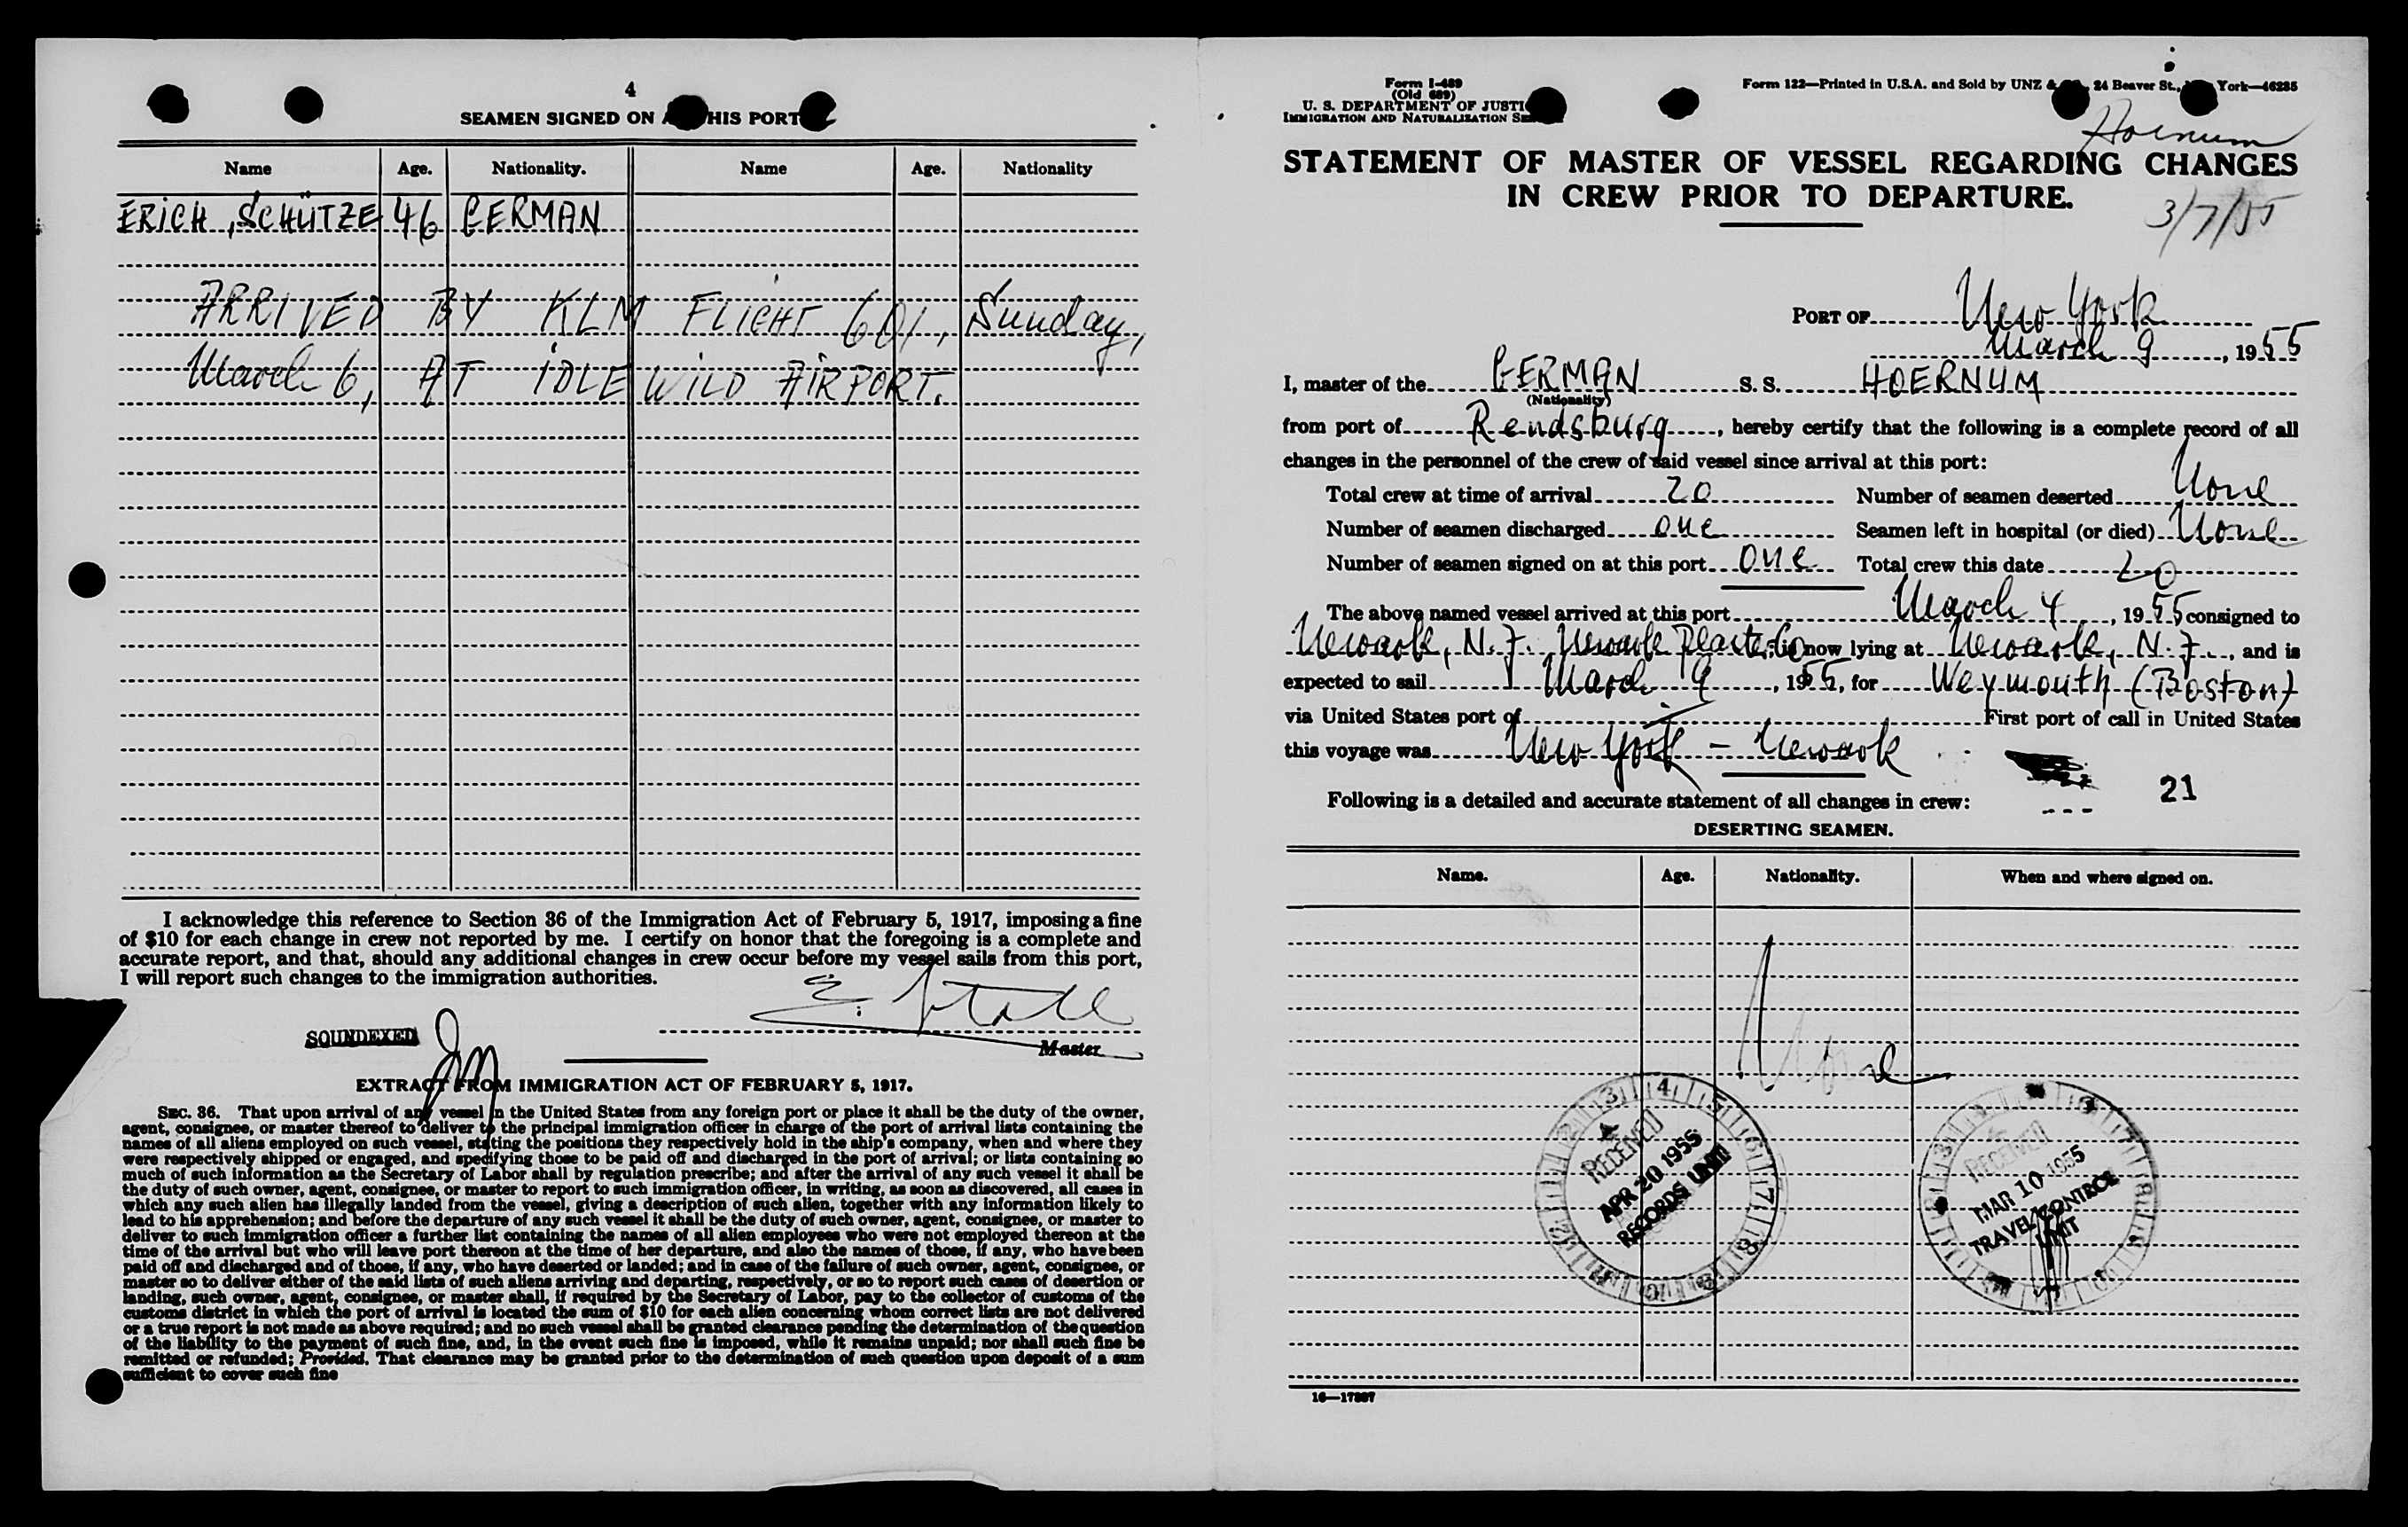 4
SEAMEN SIGNED ON HIS PORT
Name Age. Nationality. Name Age. Nationality
ERICH, SCHÜTZE 46 GERMAN
ARRIVED BY KLM FLIGHT 601, Sunday,
March 6, AT IDLEWILD AIRPORT.
I acknowledge this reference to Section 36 of the Immigration Act of February 5, 1917, imposing a fine
of $10 for each change in crew not reported by me. I certify on honor that the foregoing is a complete and
accurate report, and that, should any additional changes in crew occur before my vessel sails from this port,
I will report such changes to the immigration authorities.
SOUNDEXED
Master
EXTRACT FROM IMMIGRATION ACT OF FEBRUARY 5, 1917.
SEC. 36. That upon arrival of any vessel in the United States from any foreign port or place it shall be the duty of the owner,
agent, consignee, or master thereof to deliver to the principal immigration officer in charge of the port of arrival lists containing the
names of all aliens employed on such vessel, stating the positions they respectively hold in the ship's company, when and where they
were respectively shipped or engaged, and specifying those to be paid off and discharged in the port of arrival; or lists containing so
much of such information as the Secretary of Labor shall by regulation prescribe; and after the arrival of any such vessel it shall be
the duty of such owner, agent, consignee, or master to report to such immigration officer, in writing, as soon as discovered, all cases in
which any such alien has illegally landed from the vessel, giving a description of such alien, together with any information likely to
lead to his apprehension; and before the departure of any such vessel it shall be the duty of such owner, agent, consignee, or master to
deliver to such immigration officer a further list containing the names of all alien employees who were not employed thereon at the
time of the arrival but who will leave port thereon at the time of her departure, and also the names of those, if any, who have been
paid off and discharged and of those, if any, who have deserted or landed; and in case of the failure of such owner, agent, consignee, or
master so to deliver either of the said lists of such aliens arriving and departing, respectively, or so to report such cases of desertion or
landing, such owner, agent, consignee, or master shall, if required by the Secretary of Labor, pay to the collector of customs of the
customs district in which the port of arrival is located the sum of $10 for each alien concerning whom correct lists are not delivered
or a true report is not made as above required; and no such vessel shall be granted clearance pending the determination of the question
of the liability to the payment of such fine, and, in the event such fine is imposed, while it remains unpaid; nor shall such fine be
remitted or refunded; Provided, That clearance may be granted prior to the determination of such question upon deposit of a sum
sufficient to cover such fine
Form I-489
(Old 689)
U. S. DEPARTMENT OF JUSTI
IMMIGRATION AND NATURALIZATION SE
Form 122—Printed in U.S.A. and Sold by UNZ & 24 Beaver St., York—46285
Hoernum
STATEMENT OF MASTER OF VESSEL REGARDING CHANGES
IN CREW PRIOR TO DEPARTURE.
3/7/55
PORT OF New York
March 9, 1955
I, master of the GERMAN S. S. HOERNUM
(Nationality)
from port of Rendsburg, hereby certify that the following is a complete record of all
changes in the personnel of the crew of said vessel since arrival at this port:
Total crew at time of arrival 20 Number of seamen deserted None
Number of seamen discharged one Seamen left in hospital (or died) None
Number of seamen signed on at this port one Total crew this date 20
The above named vessel arrived at this port March 4, 1955 consigned to
Newark, N.J. Newark Plaster Co now lying at Newark, N.J., and is
expected to sail March 9, 1955, for Weymouth (Boston)
via United States port of First port of call in United States
this voyage was New York - Newark
21
Following is a detailed and accurate statement of all changes in crew:
DESERTING SEAMEN.
Name. Age. Nationality. When and where signed on.
None
RECEIVED
APR 20 1955
RECORDS UNIT
RECEIVED
MAR 10 1955
TRAVEL CONTROL
UNIT
16—17887